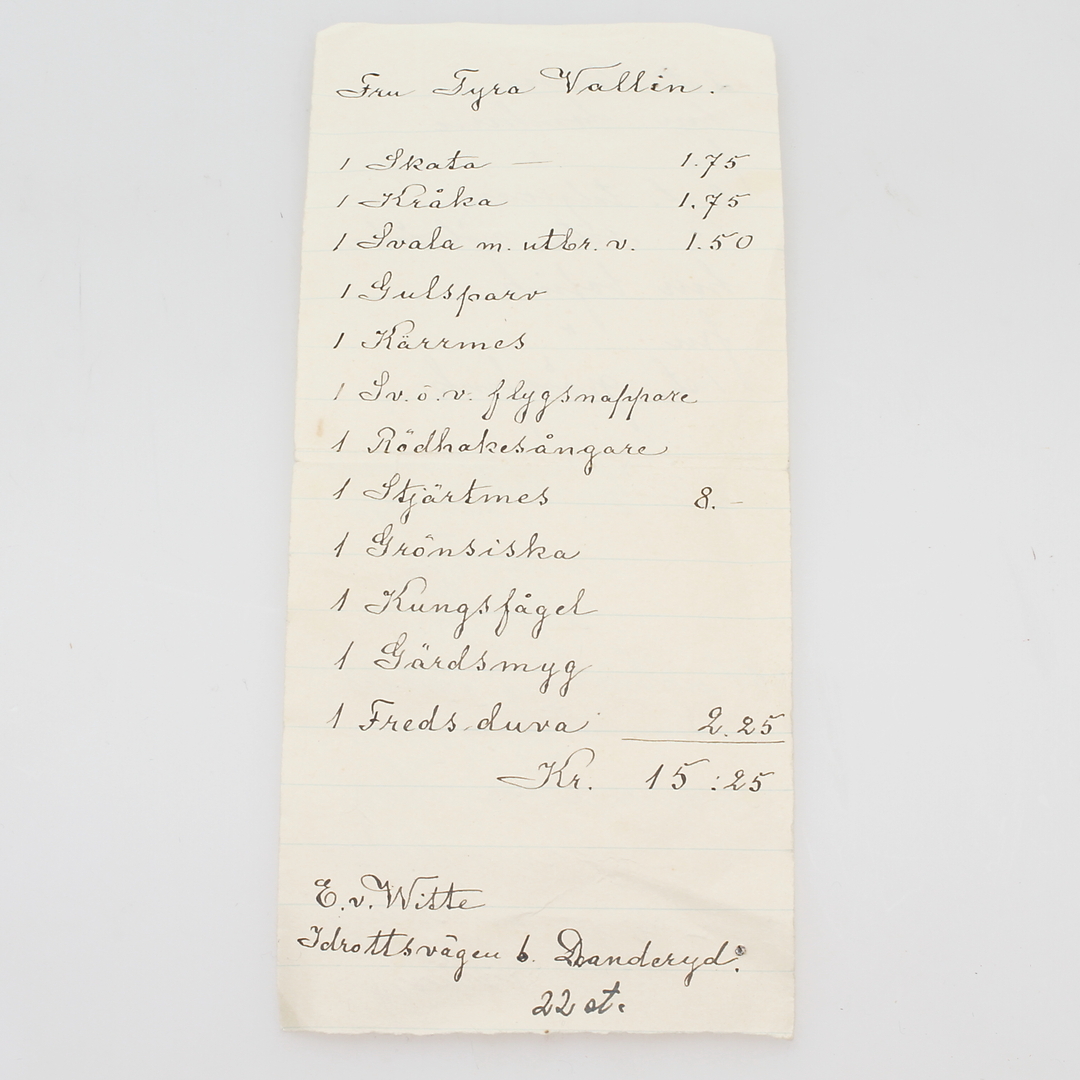 Fru Tyra Vallin.
1 Skata — 1.75
1 Kråka 1.75
1 Svala m. utbr. v. 1.50
1 Gulsparv
1 Kärrmes
1 Sv. o. v. flygsnappare
1 Rödhakesångare
1 Stjärtmes 8.-
1 Grönsiska
1 Kungsfågel
1 Gärdsmyg
1 Fredsduva 2.25
Kr. 15:25
E. v. Witte
Idrottsvägen 6. Danderyd.
22 st.